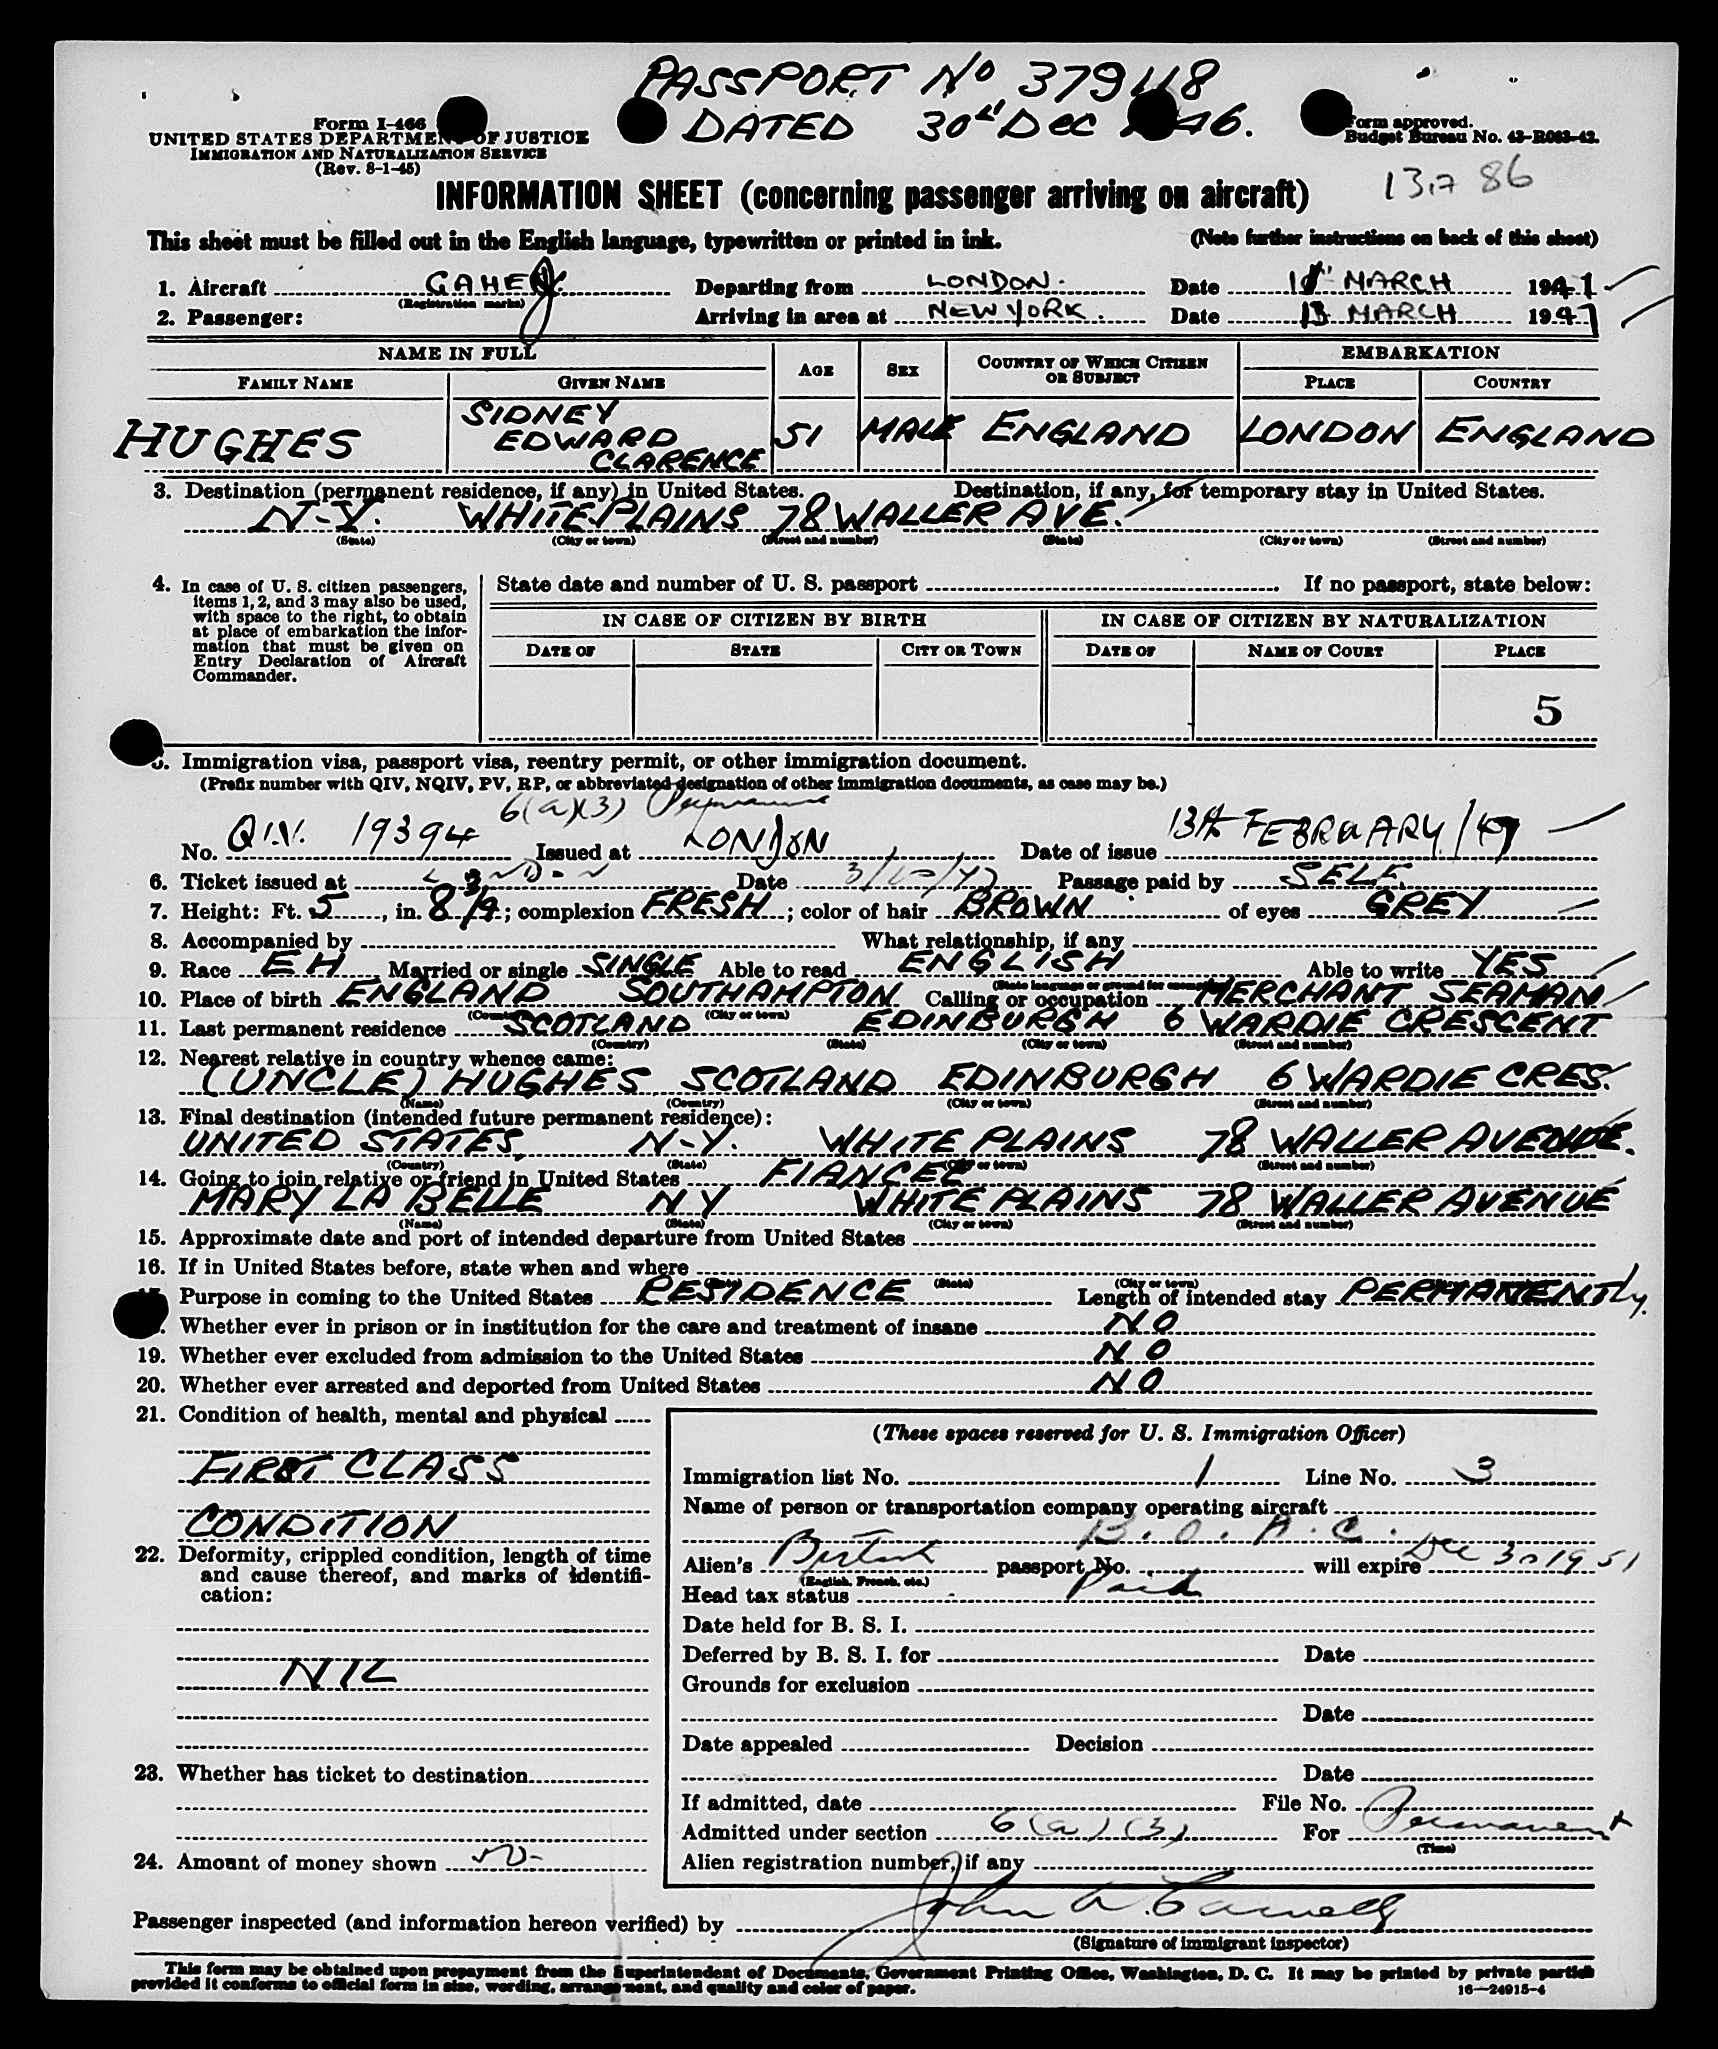 PASSPORT No 379418
DATED 30th Dec 46.
Form I-466
UNITED STATES DEPARTMENT OF JUSTICE
IMMIGRATION AND NATURALIZATION SERVICE
(Rev. 8-1-45)
Form approved.
Budget Bureau No. 43-R063-42.
86
INFORMATION SHEET (concerning passenger arriving on aircraft)
This sheet must be filled out in the English language, typewritten or printed in ink. (Note further instructions on back of this sheet)
1. Aircraft GAHEJ. Departing from LONDON. Date MARCH 194
(Registration marks)
2. Passenger: Arriving in area at NEW YORK. Date 13 MARCH 1947
NAME IN FULL AGE SEX COUNTRY OF WHICH CITIZEN OR SUBJECT EMBARKATION
FAMILY NAME GIVEN NAME PLACE COUNTRY
HUGHES SIDNEY EDWARD CLARENCE 51 MALE ENGLAND LONDON ENGLAND
3. Destination (permanent residence, if any) in United States. Destination, if any, for temporary stay in United States.
N-Y. WHITE PLAINS 78 WALLER AVE.
(State) (City or town) (Street and number) (State) (City or town) (Street and number)
4. In case of U. S. citizen passengers, items 1, 2, and 3 may also be used, with space to the right, to obtain at place of embarkation the information that must be given on Entry Declaration of Aircraft Commander.
State date and number of U. S. passport . If no passport, state below:
IN CASE OF CITIZEN BY BIRTH IN CASE OF CITIZEN BY NATURALIZATION
DATE OF STATE CITY OR TOWN DATE OF NAME OF COURT PLACE
5
5. Immigration visa, passport visa, reentry permit, or other immigration document.
(Prefix number with QIV, NQIV, PV, RP, or abbreviated designation of other immigration documents, as case may be.)
6(a)(3)
No. Q.I.V. 19394 Issued at LONDON Date of issue 13th FEBRUARY/47
6. Ticket issued at London Date Passage paid by SELF
7. Height: Ft. 5, in. 8 3/4; complexion FRESH; color of hair BROWN of eyes GREY
8. Accompanied by What relationship, if any
9. Race EH Married or single SINGLE Able to read ENGLISH Able to write YES
(State language or ground for exemption)
10. Place of birth ENGLAND SOUTHAMPTON Calling or occupation MERCHANT SEAMAN
(Country) (City or town)
11. Last permanent residence SCOTLAND EDINBURGH 6 WARDIE CRESCENT
(Country) (State) (City or town) (Street and number)
12. Nearest relative in country whence came:
(UNCLE) HUGHES SCOTLAND EDINBURGH 6 WARDIE CRES.
(Name) (Country) (City or town) (Street and number)
13. Final destination (intended future permanent residence):
UNITED STATES, N-Y. WHITE PLAINS 78 WALLER AVENUE.
(Country) (State) (City or town) (Street and number)
14. Going to join relative or friend in United States FIANCEE
MARY LA BELLE NY WHITE PLAINS 78 WALLER AVENUE
(Name) (State) (City or town) (Street and number)
15. Approximate date and port of intended departure from United States
16. If in United States before, state when and where
(State) (City or town)
17. Purpose in coming to the United States RESIDENCE Length of intended stay PERMANENTLY.
18. Whether ever in prison or in institution for the care and treatment of insane NO
19. Whether ever excluded from admission to the United States NO
20. Whether ever arrested and deported from United States NO
21. Condition of health, mental and physical
FIRST CLASS
CONDITION
22. Deformity, crippled condition, length of time and cause thereof, and marks of identification:
NIL
23. Whether has ticket to destination
24. Amount of money shown
(These spaces reserved for U. S. Immigration Officer)
Immigration list No. 1 Line No. 3
Name of person or transportation company operating aircraft
B.O.A.C.
Alien's British passport No. will expire Dec 30 1951
(English, French, etc.)
Head tax status Paid
Date held for B. S. I.
Deferred by B. S. I. for Date
Grounds for exclusion
Date
Date appealed Decision
Date
If admitted, date File No.
Admitted under section 6(a)(3) For Permanent
(Time)
Alien registration number, if any
Passenger inspected (and information hereon verified) by John
(Signature of immigrant inspector)
This form may be obtained upon prepayment from the Superintendent of Documents, Government Printing Office, Washington, D. C. It may be printed by private parties
provided it conforms to official form in size, wording, arrangement, and quality and color of paper.
16—24915-4